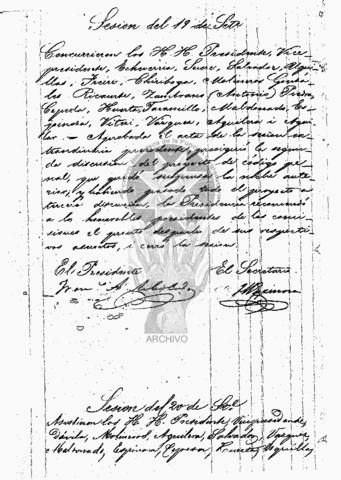 Sesion del 19 de Setе
Concurrieron los H. H. Presidente, Vice
presidente, Echeverria, Salvador,
Freire, Chiriboga,
Ricaurte, Zambrano (Antonio)
Huerta, Jaramillo, Maldonado, Es
pinosa, Vetari, Vásquez, Aguilera i Agui
lar. — Aprobada el acta de la sesion ex
traordinaria precedente, prosiguió la segun
da discusion del proyecto de código pe
nal, que quedó suspensa la noche ante
rior, y habiendo pasado todo el proyecto a
tercera discusion, la Presidencia recomendó
a los honorables presidentes de las comi
siones el pronto despacho de sus respecti
vos asuntos, i cerró la sesion.
El Presidente El Secretario
ARCHIVO
Sesion del 20 de Set
Asistieron los H. H. Presidente, Vicepresidente,
Dávila, Aguilera, Salvador, Vásquez,
Maldonado, Espinosa, Huerta,